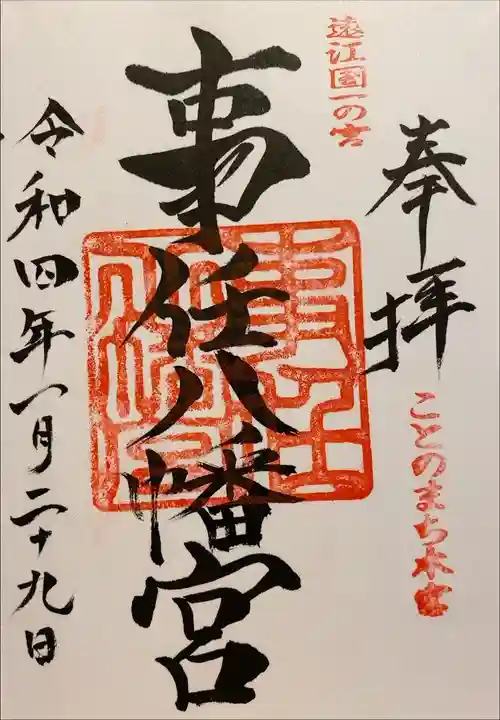 奉拝
ことのまち本宮
遠江国一の宮
事任八幡宮
令和四年一月二十九日